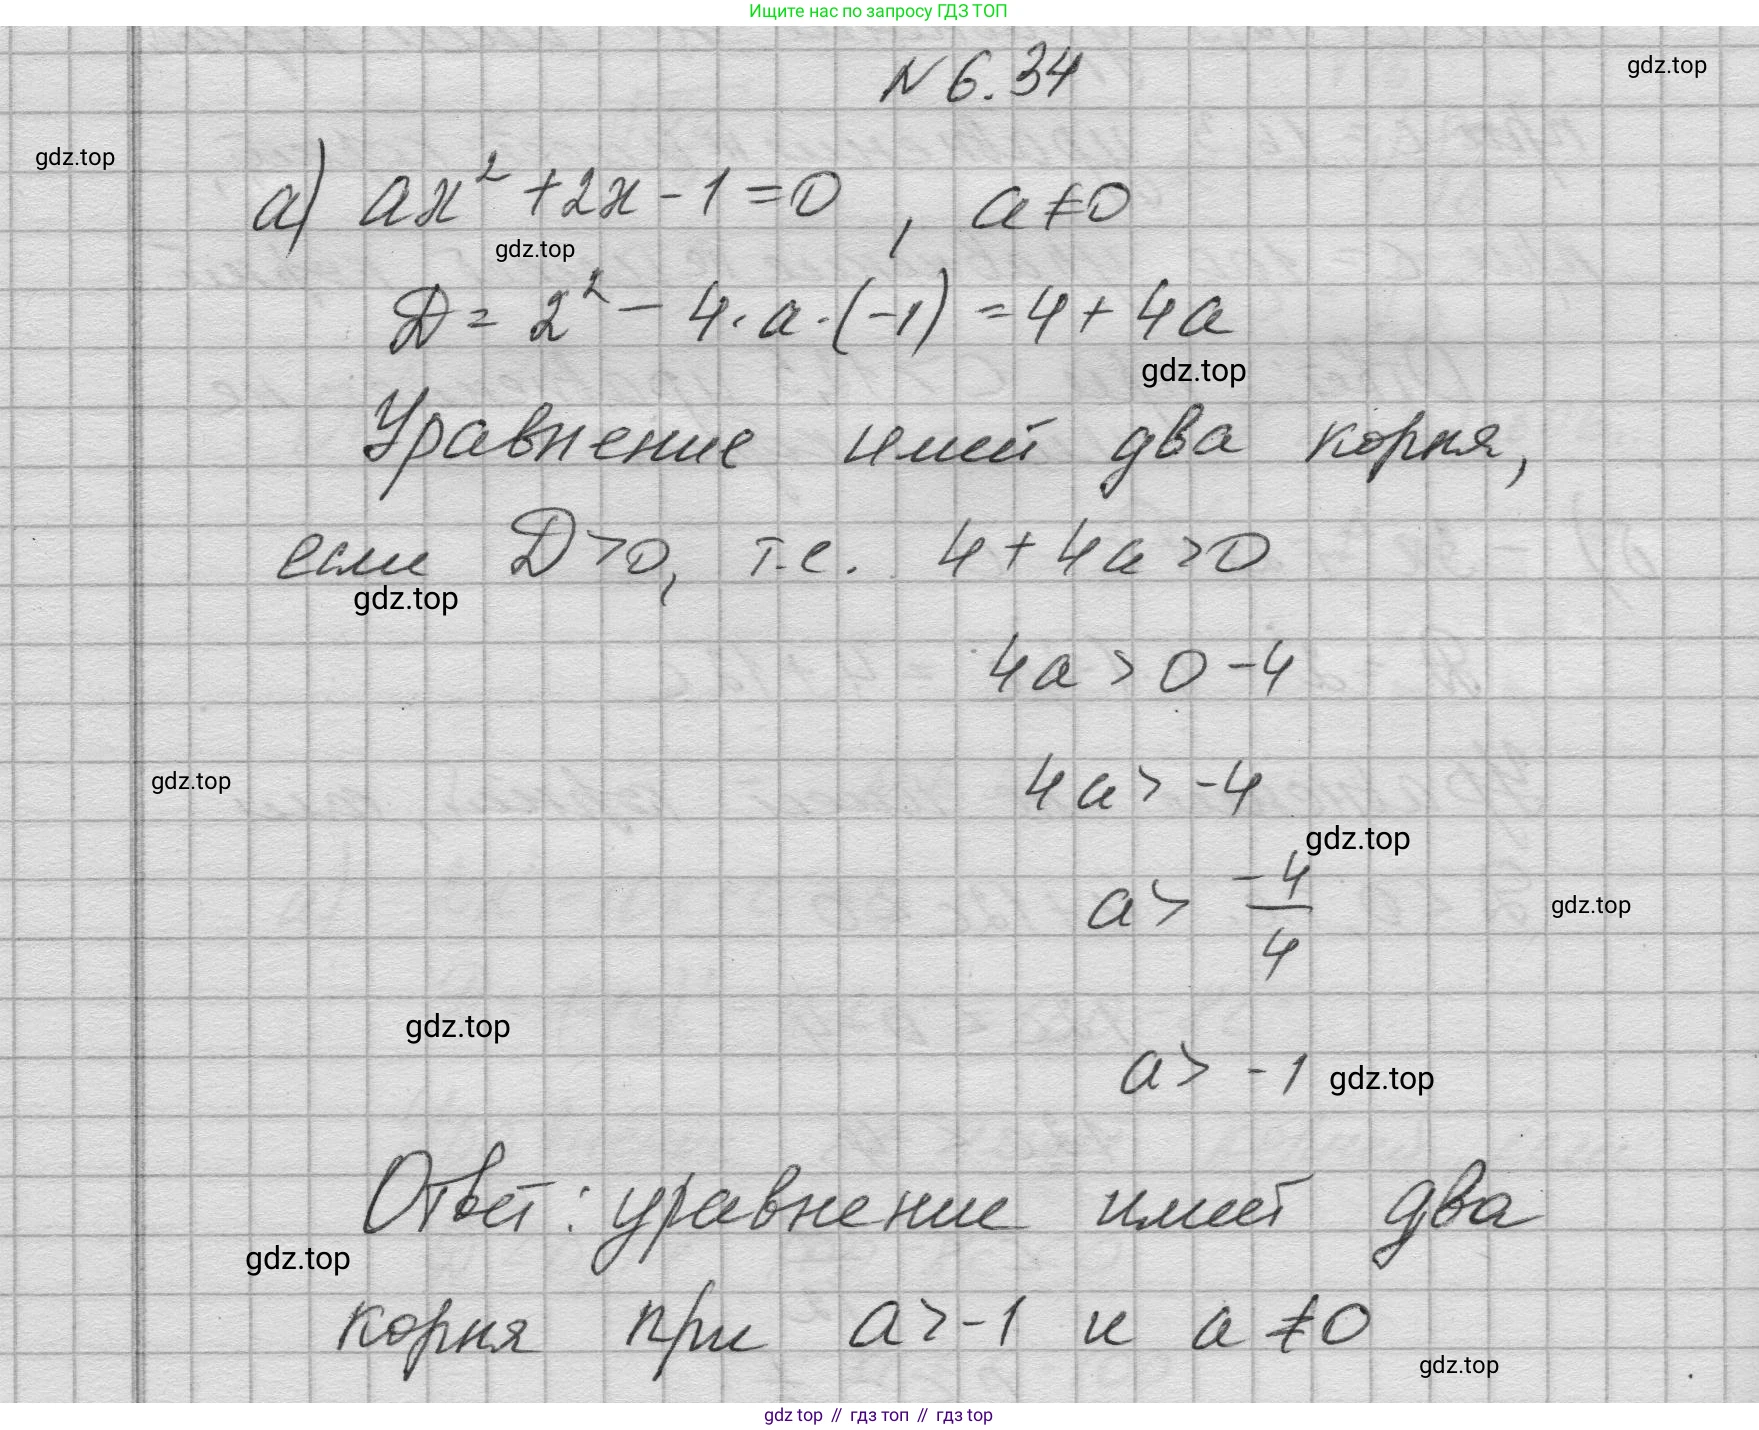 Ищите нас по запросу ГДЗ ТОП
N 6.34
gdz.top
gdz.top
а) ax² + 2x - 1 = 0 , a ≠ 0
gdz.top
D = 2² - 4 · a · (-1) = 4 + 4a
gdz.top
Уравнение имеет два корня,
если D > 0, т.е. 4 + 4a > 0
gdz.top
4a > 0 - 4
gdz.top
4a > -4
gdz.top
a > -4/4
gdz.top
gdz.top
a > -1
gdz.top
Ответ: уравнение имеет два
gdz.top
корня при a > -1 и a ≠ 0
gdz.top
gdz top // гдз топ // гдз top